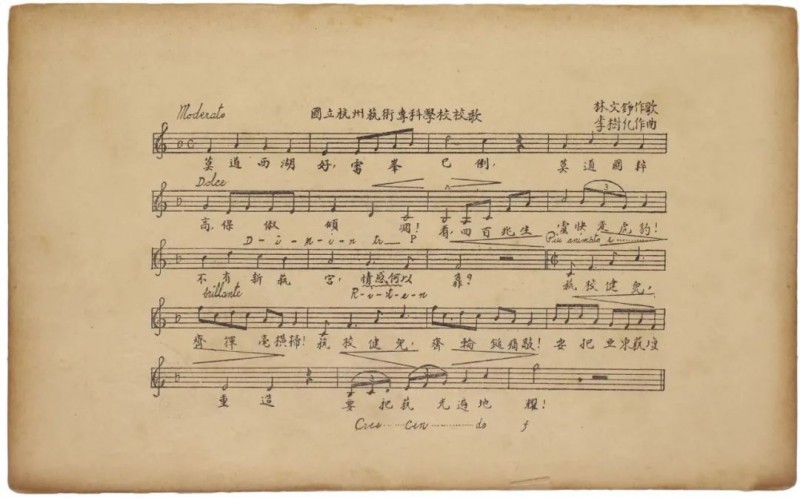 Moderato 國立杭州藝術專科學校校歌 林文錚作歌
李樹化作曲
莫道西湖好,雷峯已倒,莫道國粹
Dolce
高,保俶傾凋!看,四百兆生靈快走虎豹!
D-i-m-i-n P Più animato e
不有新藝宮,情感何以靠?藝校健兒,
brillante R-i-t-e-n
齊揮毫橫掃!藝校健兒,齊輪錘痛敲!要把亞東藝壇
重造 要把藝光遍地耀!
Cres......cen............do f